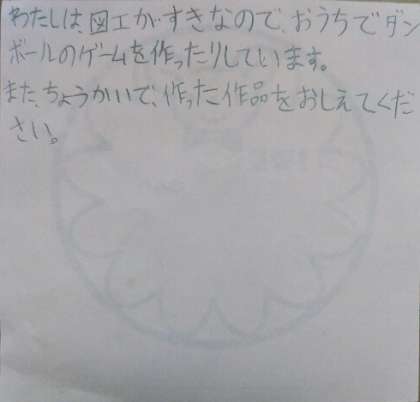 わたしは、図工がすきなので、おうちでダン
ボールのゲームを作ったりしています。
また、ちょうかいで、作った作品をおしえてくだ
さい。